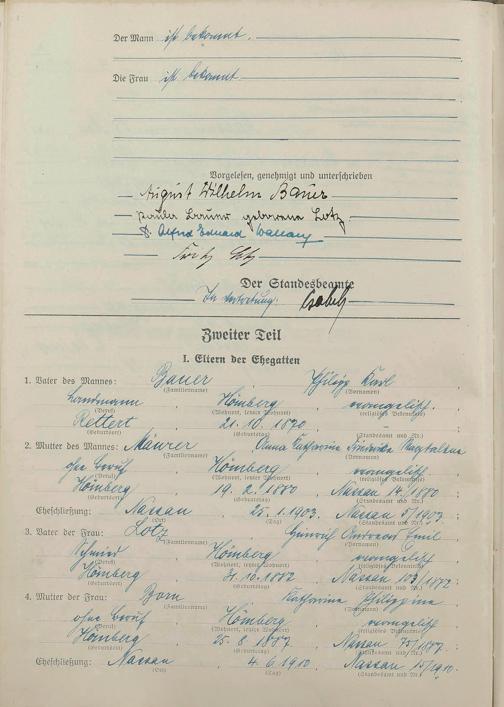 Der Mann ist bekannt.
Die Frau ist bekannt
Vorgelesen, genehmigt und unterschrieben
August Wilhelm Bauer
Paula Bauer geborene Lotz
Alfred Eduard
Der Standesbeamte
In Vertretung:
Zweiter Teil
I. Eltern der Ehegatten
1. Vater des Mannes: Bauer Philipp Karl
(Familienname) (Vornamen)
Landmann Hömberg evangelisch
(Beruf) (Wohnort, letzter Wohnort) (religiöses Bekenntnis)
Rettert 21.10.1870
(Geburtsort) (Geburtstag) (Standesamt und Nr.)
2. Mutter des Mannes: Maurer Anna Katharina Magdalena
(Familienname) (Vornamen)
ohne Beruf Hömberg evangelisch
(Beruf) (Wohnort, letzter Wohnort) (religiöses Bekenntnis)
Hömberg 19.2.1880 Nassau 14/1880
(Geburtsort) (Geburtstag) (Standesamt und Nr.)
Eheschließung: Nassau 25.1.1903. Nassau 5/1903.
(Ort) (Tag) (Standesamt und Nr.)
3. Vater der Frau: Lotz Heinrich Andreas Emil
(Familienname) (Vornamen)
Schmied Hömberg evangelisch
(Beruf) (Wohnort, letzter Wohnort) (religiöses Bekenntnis)
Hömberg Nassau
(Geburtsort) (Geburtstag) (Standesamt und Nr.)
4. Mutter der Frau: Born Katharina Philippina
(Familienname) (Vornamen)
ohne Beruf Hömberg evangelisch
(Beruf) (Wohnort, letzter Wohnort) (religiöses Bekenntnis)
Hömberg 25.8.1887 Nassau 75/1887.
(Geburtsort) (Geburtstag) (Standesamt und Nr.)
Eheschließung: Nassau 4.6.1910 Nassau 15/1910.
(Ort) (Tag) (Standesamt und Nr.)